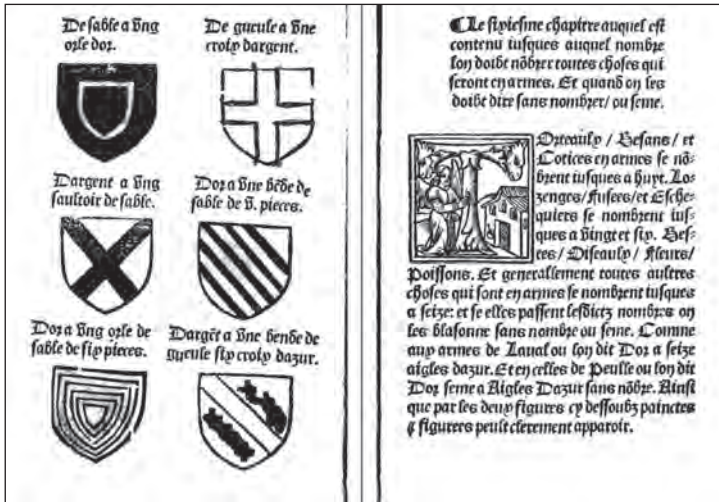 De sable a ung
orle dor.
De gueule a vne
croix dargent.
Dargent a ung
saultoir de sable.
Dor a vne bēde de
sable de v. pieces.
Dor a ung orle de
sable de six pieces.
Dargēt a vne bende de
gueule six croix dazur.
¶ Le sixiesme chapitre auquel est
contenu iusques auquel nombre
lon doibt nōbrer toutes choses qui
seront en armes. Et quand on les
doibt dire sans nombrer/ ou seme.
Torteaulx / Besans / et
Cotices en armes se nō-
brent iusques a huyt. Lo-
zenges/ fusees/ et Esche-
quiers se nombrent ius-
ques a vingt et six. Bes-
tes / Oiseaulx / fleurs/
Poissons. Et generallement toutes aultres
choses qui sont en armes se nombrent iusques
a seize: et se elles passent lesdictz nombres on
les blasonne sans nombre ou seme. Comme
aux armes de Laual ou lon dit Dor a seize
aigles dazur. Et en celles de Peulle ou lon dit
Dor seme a Aigles Dazur sans nōbre. Ainsi
que par les deux figures cy dessoubz painctes
& figurees peult clerement apparoir.